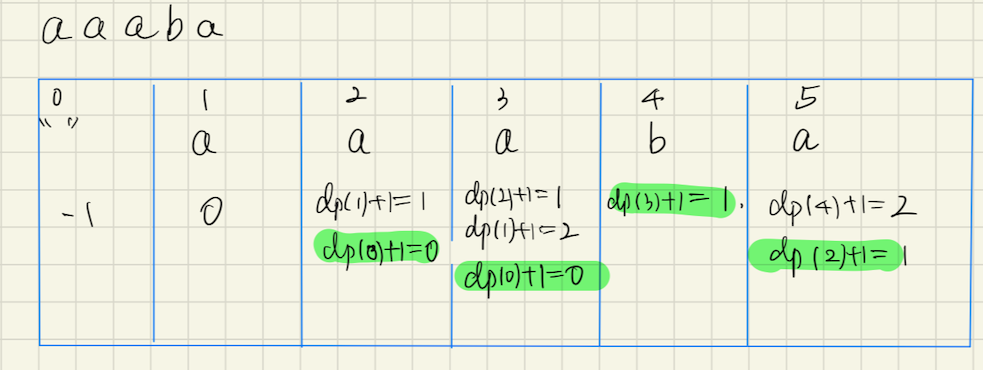 a a a b a
0 1 2 3 4 5
" " a a a b a
-1 0 dp(1)+1=1 dp(2)+1=1 dp(3)+1=1. dp(4)+1=2
dp(0)+1=0 dp(1)+1=2 dp(2)+1=1
dp(0)+1=0